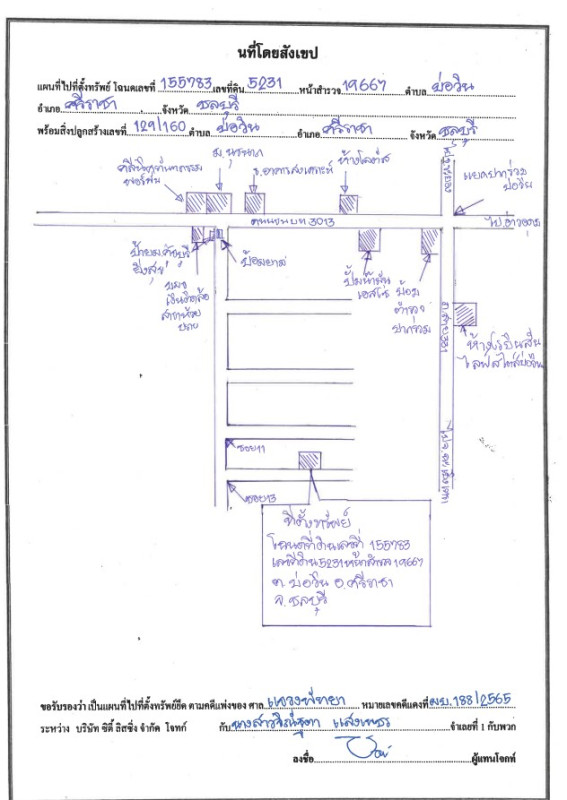 นที่โดยสังเขป
แผนที่ไปที่ตั้งทรัพย์ โฉนดเลขที่ 155783 เลขที่ดิน 5231 หน้าสำรวจ 19667 ตำบล บ่อวิน
อำเภอ ศรีราชา จังหวัด ชลบุรี
พร้อมสิ่งปลูกสร้างเลขที่ 129/160 ตำบล บ่อวิน อำเภอ ศรีราชา จังหวัด ชลบุรี
ร.อาคารสงเคราะห์
ห้างโลตัส
แยกปากร่วม
บ่อวิน
ถนนชนบท 3013
ป้อมยาม
ปั๊มน้ำมัน
เอสโซ่
ป้อม
ตำรวจ
ปากร่วม
ห้างโรบินสัน
ไลฟ์สไตล์บ่อวิน
ซอย11
ซอย13
ที่ตั้งทรัพย์
โฉนดที่ดินเลขที่ 155783
เลขที่ดิน 5231 หน้าสำรวจ 19667
ต. บ่อวิน อ. ศรีราชา
จ. ชลบุรี
ขอรับรองว่า เป็นแผนที่ไปที่ตั้งทรัพย์ยึด ตามคดีแพ่งของ ศาล แขวงพัทยา หมายเลขคดีแดงที่ ผบ. 188/2565
ระหว่าง บริษัท ซิตี้ ลิสซิ่ง จำกัด โจทก์ กับ นางสาว จำเลยที่ 1 กับพวก
ลงชื่อ ผู้แทนโจทก์